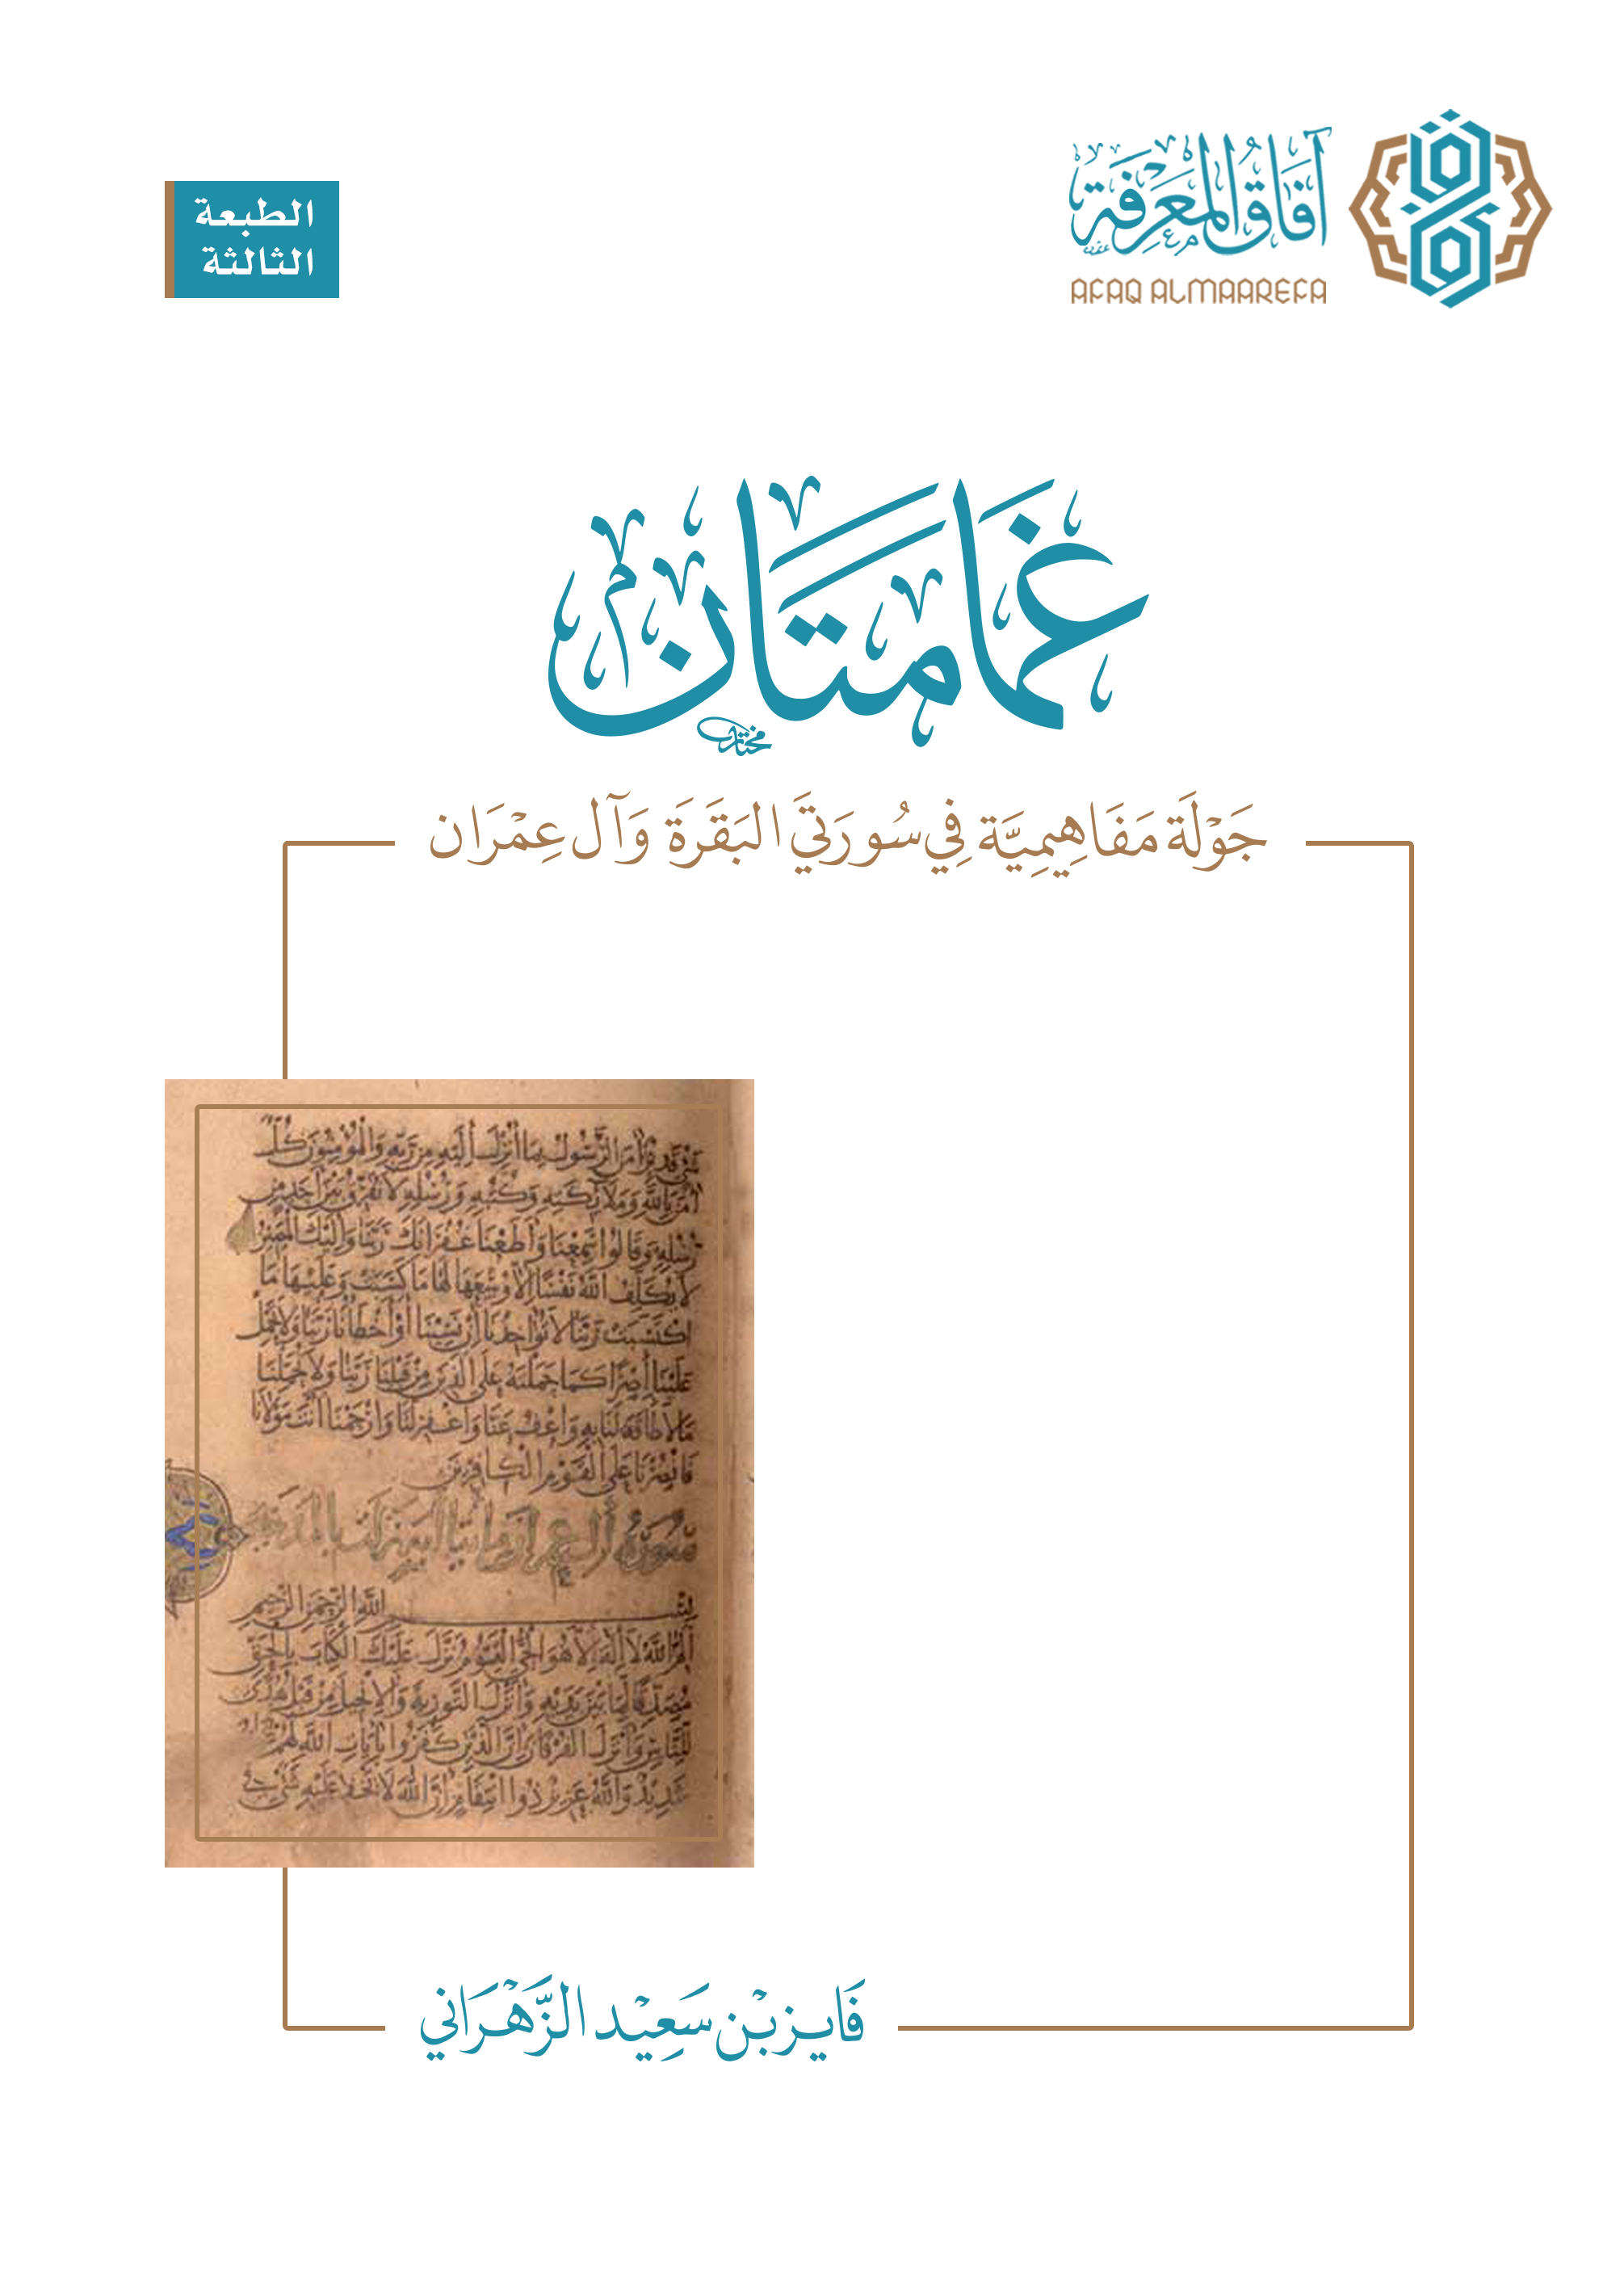 آفَاقُ المَعْرِفَة
AFAQ ALMAAREFA
الطبعة
الثالثة
غَمَامَتَان
مختار
جَوْلَة مَفَاهِيمِيَّة فِي سُورَتَيِ البَقَرَةَ وَآل عِمْرَان
شَيْءٍ قَدِيرٌ آمَنَ الرَّسُولُ بِمَا أُنْزِلَ إِلَيْهِ مِنْ رَبِّهِ وَالْمُؤْمِنُونَ كُلٌّ
آمَنَ بِاللَّهِ وَمَلَائِكَتِهِ وَكُتُبِهِ وَرُسُلِهِ لَا نُفَرِّقُ بَيْنَ أَحَدٍ مِنْ
رُسُلِهِ وَقَالُوا سَمِعْنَا وَأَطَعْنَا غُفْرَانَكَ رَبَّنَا وَإِلَيْكَ الْمَصِيرُ
لَا يُكَلِّفُ اللَّهُ نَفْسًا إِلَّا وُسْعَهَا لَهَا مَا كَسَبَتْ وَعَلَيْهَا مَا
اكْتَسَبَتْ رَبَّنَا لَا تُؤَاخِذْنَا إِنْ نَسِينَا أَوْ أَخْطَأْنَا رَبَّنَا وَلَا تَحْمِلْ
عَلَيْنَا إِصْرًا كَمَا حَمَلْتَهُ عَلَى الَّذِينَ مِنْ قَبْلِنَا رَبَّنَا وَلَا تُحَمِّلْنَا
مَا لَا طَاقَةَ لَنَا بِهِ وَاعْفُ عَنَّا وَاغْفِرْ لَنَا وَارْحَمْنَا أَنْتَ مَوْلَانَا
فَانْصُرْنَا عَلَى الْقَوْمِ الْكَافِرِينَ
سُورَةُ آل عمران
بِسْمِ اللَّهِ الرَّحْمَنِ الرَّحِيمِ
الم اللَّهُ لَا إِلَهَ إِلَّا هُوَ الْحَيُّ الْقَيُّومُ نَزَّلَ عَلَيْكَ الْكِتَابَ بِالْحَقِّ
مُصَدِّقًا لِمَا بَيْنَ يَدَيْهِ وَأَنْزَلَ التَّوْرَيةَ وَالْإِنْجِيلَ مِنْ قَبْلُ هُدًى
لِلنَّاسِ وَأَنْزَلَ الْفُرْقَانَ إِنَّ الَّذِينَ كَفَرُوا بِآيَاتِ اللَّهِ لَهُمْ عَذَابٌ
شَدِيدٌ وَاللَّهُ عَزِيزٌ ذُو انْتِقَامٍ إِنَّ اللَّهَ لَا يَخْفَى عَلَيْهِ شَيْءٌ فِي
فَايز بْن سَعِيْد الزَّهْرَاني